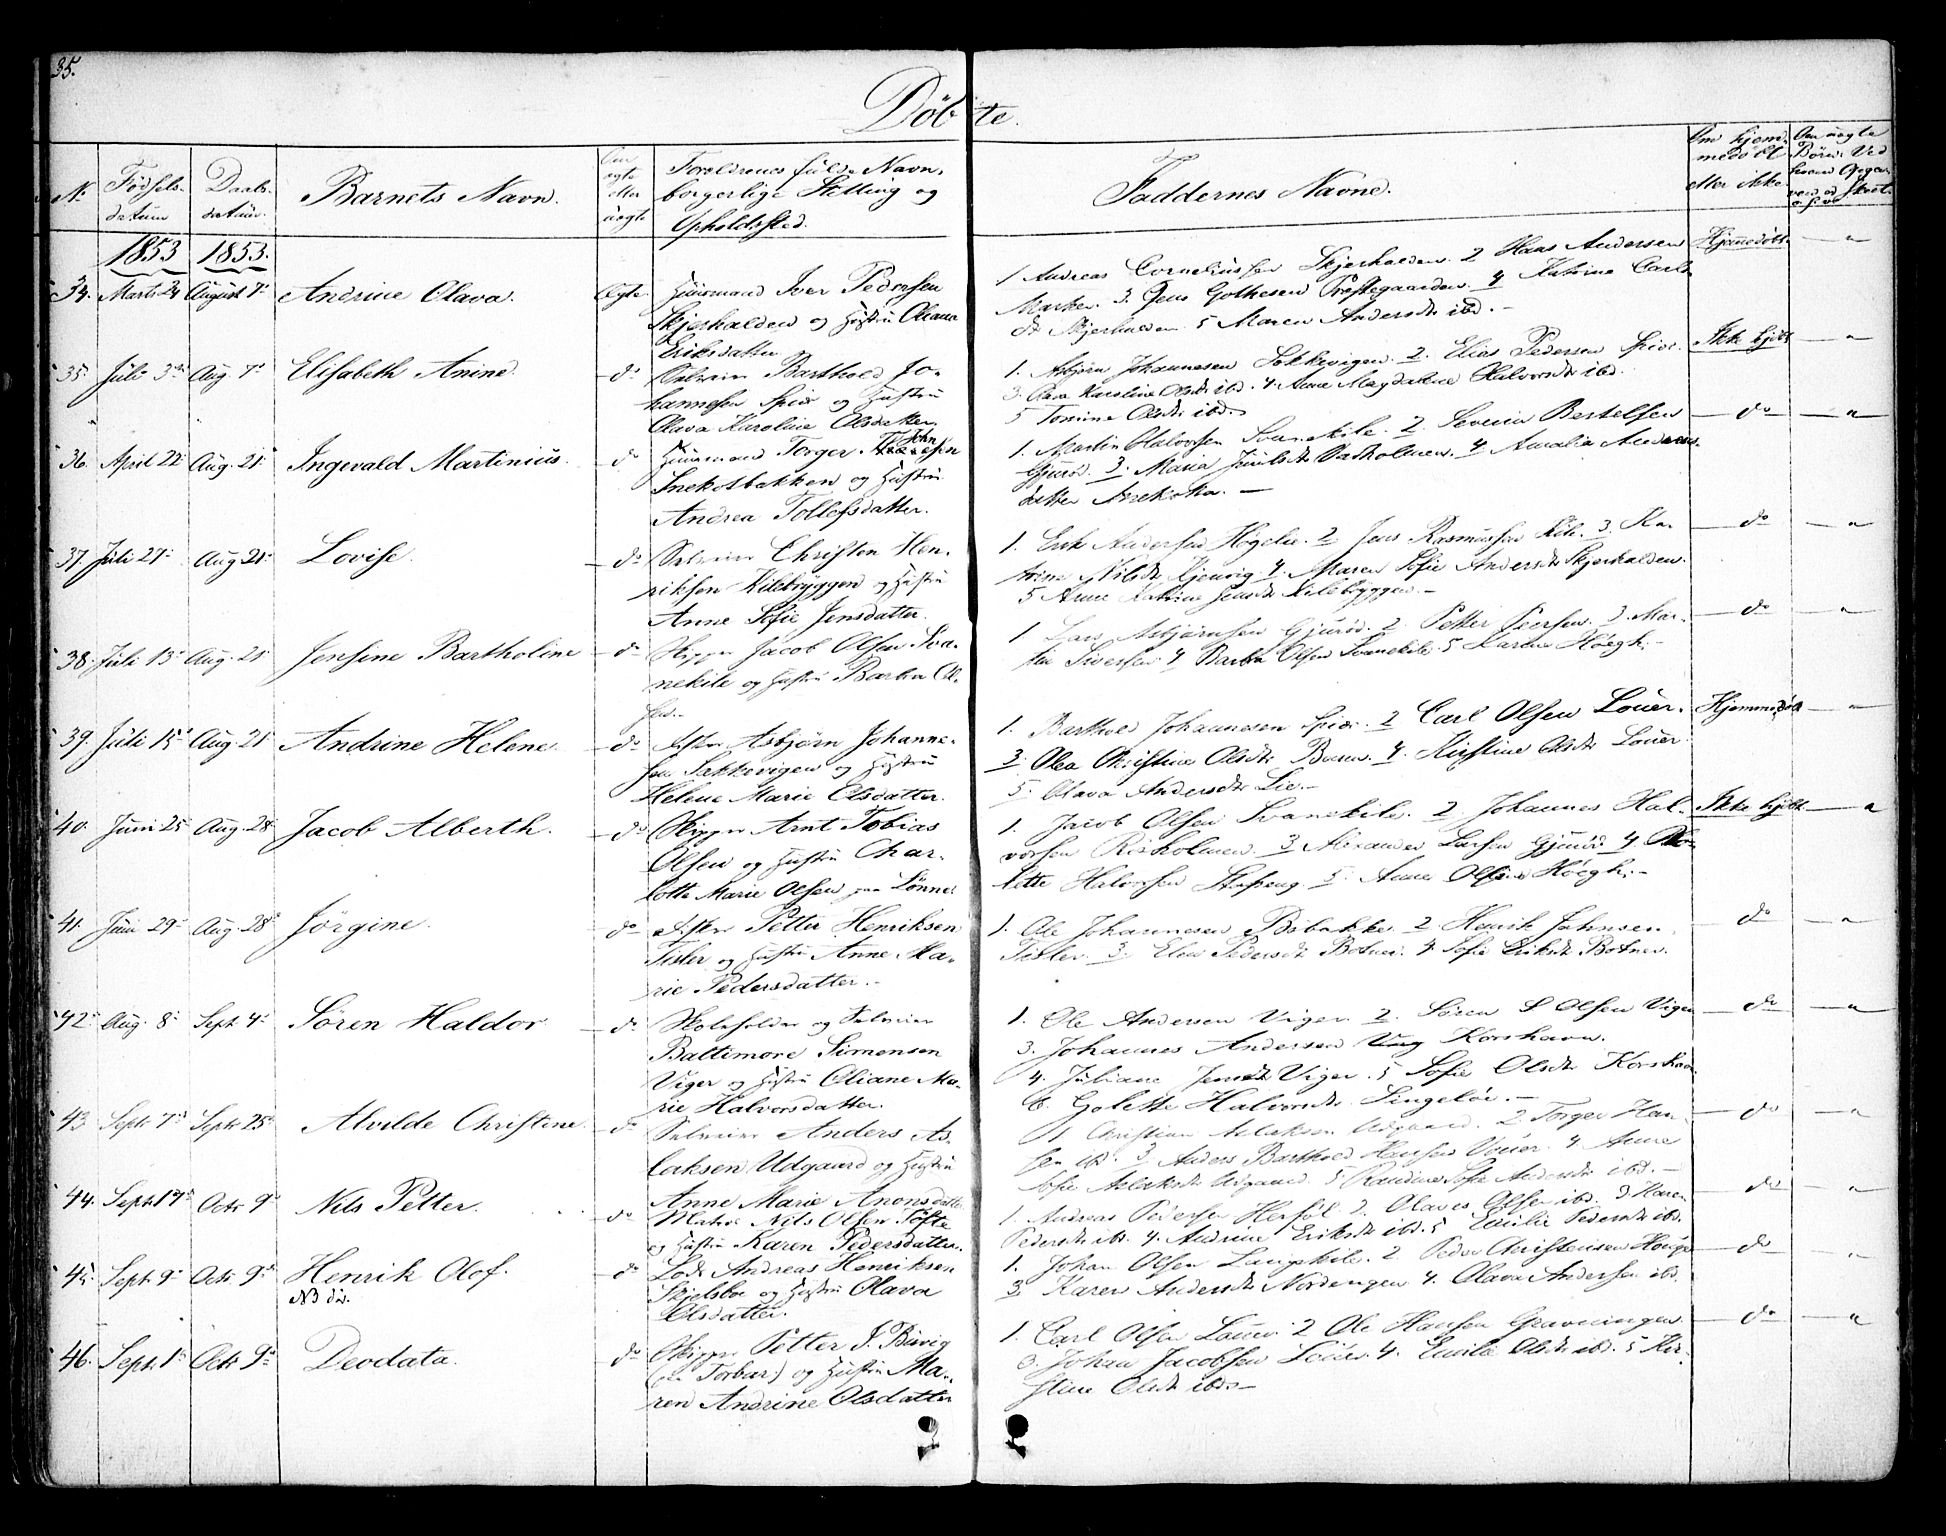 35.
Döbte.
No
Födsels-
datum
Daabs-
datum.
Barnets Navn.
Om
ægte
eller
uægte
Forældrenes fulde Navn,
borgerlige Stilling og
Opholdssted.
Faddernes Navne.
Om hjem-
medöbt
eller ikke
1853 1853.
34. Marts 24 August 7 Andrine Olava. Ægte. Huusmand Iver Pedersen
Skjærhalden og Hustru Oliana
Eriksdatter
1 Andreas Corneliussen Skjærhalden. 2 Hans Andersen
Marken. 3. Jens Gothesen Præstegaarden. 4 Katrine Carls
dt Skjærhalden 5 Maren Andersdt ibd. –
Hjemmedöbt
35. Juli 3 Aug. 7 Elisabeth Anine. do Selveier Barthold Jo-
hannesen Spidr og Hustru
Olava Karoline Olsdatter
1. Asbjörn Johannesen Sækkevigen. 2. Elias Pedersen
3. Olava Karoline Olsdt ibd. 4. Anne Magdalene Halvorsdt ibd.
5 Tomine Olsdt ibd.
Ikke hjdbt
36. April 22 Aug. 21 Ingevald Martinius. do Huusmand Torger John
Snekotbakken og Hustru
Andrea Tollefsdatter.
1. Martin Halvorsen Svanekile. 2. Severin Bertelsen
Gjuröd. 3. Maria Juulsdt Basholmen. 4 Amalia Anders
datter
do
37. Juli 27 Aug 21 Lovise. do Selveier Christen Hen-
riksen Kilebryggen og Hustru
Anne Sofie Jensdatter.
1. Erik Andersen Högelie. 2 Jens Rasmussen Kile. 3. Ka-
trine Nilsdt Kjenvig. 4. Maren Sofie Andersdt Skjærhalden.
5 Anne Katrine Jensdt Kilebryggen –
do
38. Juli 13 Aug. 21 Jensine Bartholine do Skipper Jacob Olsen Sva-
nekile og Hustru Barba Ol-
sen.
1 Lars Asbjörnsen Gjuröd. 2. Petter Iversen. 3 Mar-
tin Sivertsen. 4 Barba Olsen Svanekile. 5 Karine Höegh. –
do
39. Juli 15 Aug. 21 Andrine Helene do Fisker Asbjörn Johanne-
sen Sækkevigen og Hustru
Helene Marie Olsdatter.
1. Barthold Johannesen Spidr. 2 Carl Olsen Löuer.
3 Olea Christine Olsdt Buen. 4. Kirstine Olsdt Löuer
5. Olava Andersdt Lie –
Hjemmedöbt
40. Juni 25 Aug. 28 Jacob Alberth. do Skipper Arnt Tobias
Olsen og Hustru Char-
lotte Marie Olsen paa Lönne
1. Jacob Olsen Svanekile. 2 Johannes Hal-
vorsen Risholmen. 3 Alexander Larsen Gjuröd 4
lette Halvorsen Stafseng 5. Anne Olsen Höegh. –
Ikke hjdbt
41. Juni 29 Aug. 28 Jörgine. do Fisker Petter Henriksen
Tisler og Hustru Anne Ma-
rie Pedersdatter. –
1. Ole Johannesen Bsbakke. 2 Henrik Johnsen
Tisler. 3. Elen Pedersdt Botner. 4 Sofie Eriksdt Botner.
do
42. Aug. 8 Sept. 4 Sören Haldor do Skoleholder og Selveier
Baltimore Simensen
Viger og Hustru Oliane Ma-
rie Halvorsdatter.
1. Ole Andersen Viger. 2. Sören S Olsen Viger
3. Johannes Andersen Korshavn.
4. Juliane Jensdt Viger. 5 Sofie Olsdt Korshavn
6. Golette Halvorsdt Singelöe. –
do
43. Sept. 7 Sept 25 Alvilde Christine do Selveier Anders As-
laksen Udgaard og Hustru
Anne Marie Aronsdatter
1 Christian Aslaksen Udgaard. 2 Torger Han-
sen ibd. 3. Anders Barthold Hansen 4. Anne
Sofie Aslaksdt Udgaard. 5 Randine Sofie Andersdt ibd. –
do
44. Sept. 19 Octr 9 Nils Petter. do Matros Nils Olsen Töfte
og Hustru Karen Pedersdatter.
1. Andreas Pedersen Herföl. 2. Olaves Olsen ibd. 3 Karen
Pedersdt ibd. 4. Andrine Eriksdt ibd. 5 Emilie Pedersdt ibd.
do
45. Sept. 9 Octr 9 Henrik Olof. do Lods Andreas Henriksen
NB
Skjelsbo og Hustru Olava
Olsdatter.
1. Johan Olsen Langekile. 2 Peder Christensen
3. Karen Andersdt Nordengen 4. Olava Andersen ibd.
do
46. Sept. 1 Octr 9 Deodata. do Skipper Petter J. Buvig
Torbur) og Hustru Ma-
ren Andrine Olsdatter
1. Carl Olsen Löuer. 2 Ole Hansen Gravningen
3. Johan Jacobsen Löuer. 4. Emilie Olsdt ibd. 5 Kir-
stine Olsdt ibd. –
do